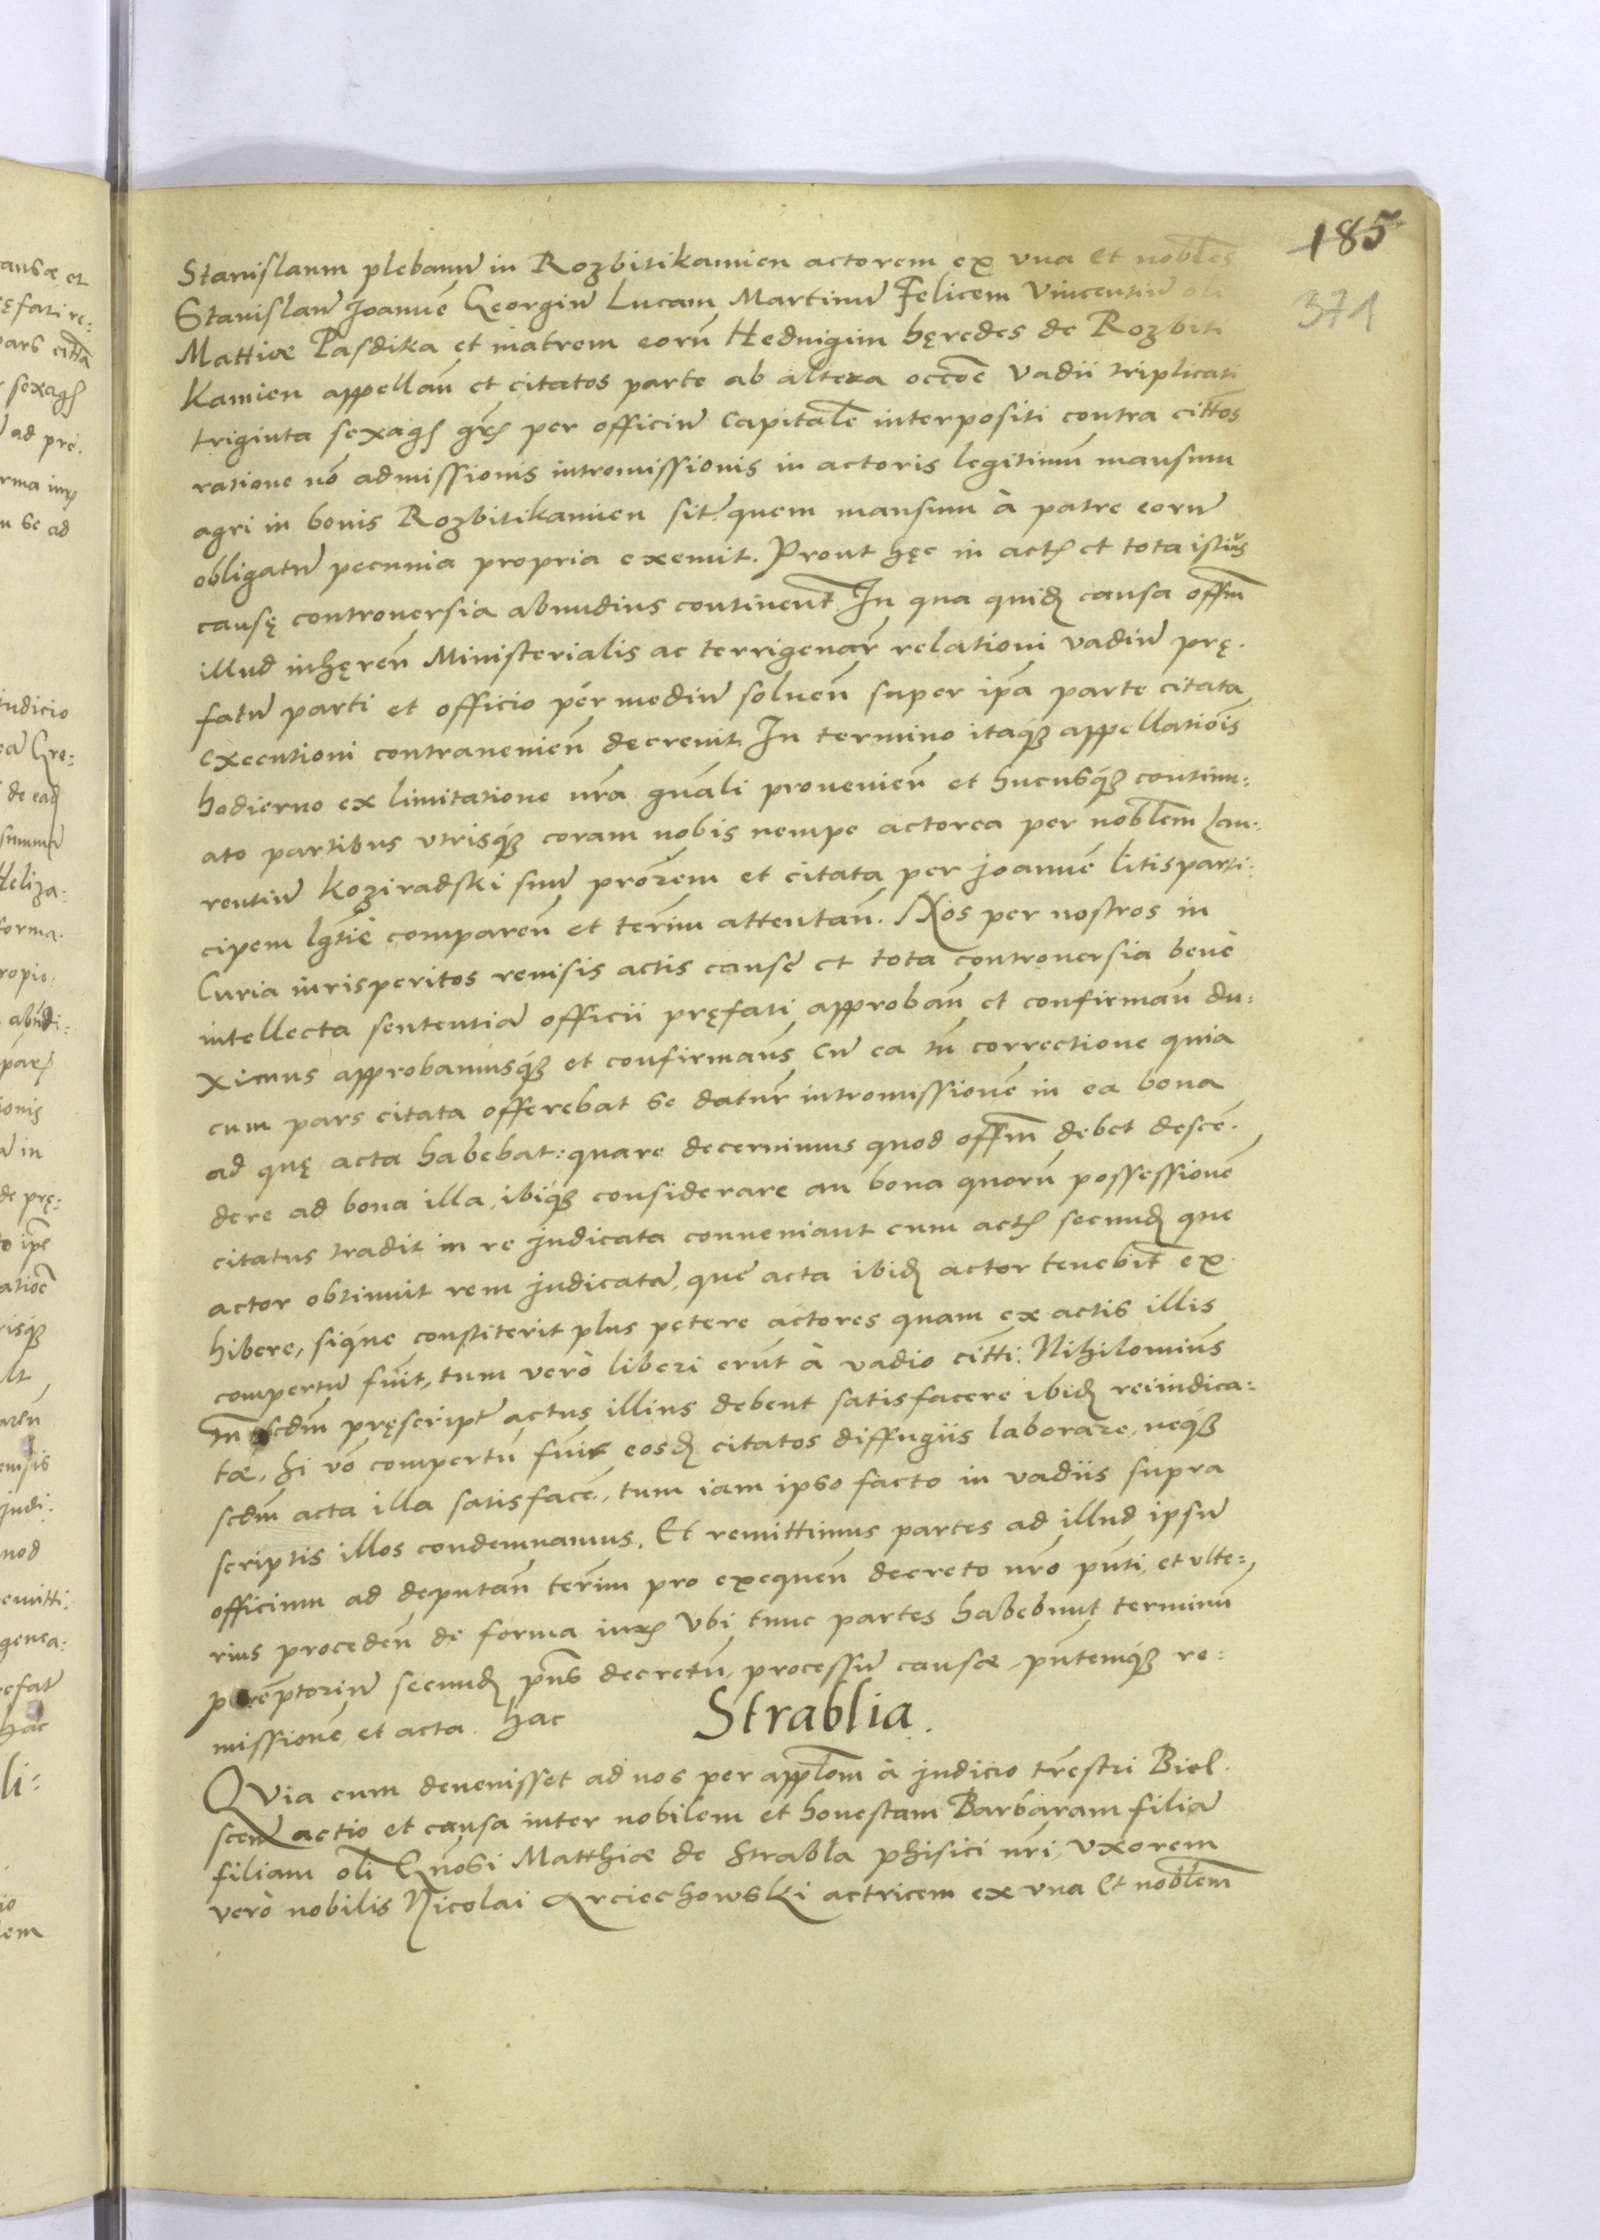 185
371
Stanislaum plebanū in Rozbitikamien actorem ex vna et nobles
Stanislaū Joannē Georgiū Lucam Martinū Felicem Vincentiū oli
Mattiæ Pasdika et matrem eorū Heduigim hęredes de Rozbiti
Kamien appellan̄ et citatos parte ab altera occōe vadii triplicati
triginta sexagꝭ gꝛꝭ per officiū Capitale interpositi contra cittos
ratione nō admissionis intromissionis in actoris legitimū mansum
agri in bonis Rozbitikamien sit: quem mansum à patre eorū
obligatū pecunia propria exemit. Prout hęc in actꝭ et tota istius
causę controuersia abundius continent̄ In qua quidꝫ causa offm̄
illud inhęren̄ Ministerialis ac terrigenar̄ relationi vadiū prę-
fatū parti et officio per mediū soluen̄ super ipā parte citata
executioni contrauenien̄ decreuit. In termino itaqꝫ appellatiōis
hodierno ex limitatione nr̄a gnāli prouenien̄ et hucusqꝫ continu:
ato partibus vtrisqꝫ coram nobis nempe actorea per nobl̄em Lau:
rentiū Koziradski suū prōrem et citata per Joannē litisparti:
cipem lgtīē comparen̄ et term̄ attentan̄. Nos per nostros in
Curia iurisperitos reuisis actis causę et tota controuersia bene
intellecta sententiā officii pręfati approban̄ et confirman̄ du:
ximus approbamusqꝫ et confirmam̄s cū ea tn̄ correctione quia
cum pars citata offerebat se datur̄ intromissionē in ea bona
ad quę acta habebat: quare decernimus quod offm̄ debet descē-
dere ad bona illa, ibiqꝫ considerare an bona quorū possessionē
citatus tradit in re judicata conueniant cum actꝭ secundꝫ que
actor obtinuit rem judicatā, que acta ibidꝫ actor tenebit̄ ex-
hibere, siqꝫne constiterit plus petere actores quam ex actis illis
compertū fuit, tum verò liberi erūt à vadio citti. Nihilomiūs
tn̄ scdm̄ pręscript̄ actus illius debent satisfacere ibidꝫ reiiudica:
tæ, Si vō compertū fuit eosdꝫ citatos diffugiis laborare, neqꝫ
scdm̄ acta illa satisfacē, tum iam ipso facto in vadiis supra
scriptis illos condemnamus. Et remittimus partes ad illud ipsū
officium ad deputan̄ term̄ pro exequen̄ decreto nr̄o pn̄ti, et vlte:
rius proceden̄ de forma iurꝭ Vbi tunc partes habebunt terminū
peremptoriū secundꝫ pn̄s decretū, processū causæ, pn̄temqꝫ re:
missionē, et acta. hac
Strablia.
QVia cum deuenisset ad nos per applōm à judicio trēstri Biel-
scen̄ actio et causa inter nobilem et honestam Barbaram filiā
filiam oli Gn̄osi Matthiæ de Strabla phisici nr̄i, vxorem
verò nobilis Nicolai Arciechowski actricem ex vna et nobl̄em